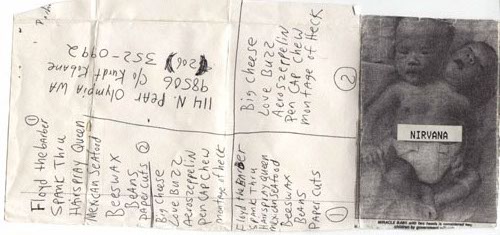 ①
Floyd the barber
Spank Thru
Hairspray Queen
Mexican Seafood
Beeswax
Beans
Paper Cuts ②
Big Cheese
Love Buzz
Aeroszeppelin
Pen Cap Chew
montage of Heck
114 N. Pear Olympia WA
98506 c/o Kurdt Kobane
(206) 352-0992
Big Cheese
Love Buzz
Aeroszeppelin
Pen Cap Chew
montage of Heck
②
Floyd the Barber
Spank Thru
Hairspray Queen
mexican seafood
Beeswax
Beans
Paper Cuts
①
NIRVANA
MIRACLE BABY with two heads is considered two
children by government